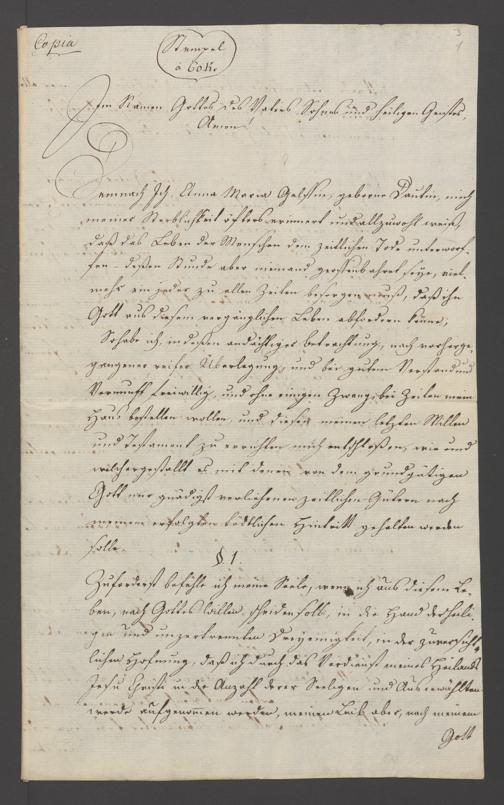 Copia
Stempel
à 60 k.
Im Namen Gottes des Vaters Sohnes und heiligen Geistes,
Amen!
Demnach Ich, Anna Maria geborne Dautin, mich
meiner Sterblichkeit öfters erinnert und allzuwohl weiß,
daß das Leben der Menschen dem zeitlichen Tode unterwor-
fen, deßen Stunde aber niemand geoffenbahret seye, viel-
mehr ein jeder zu allen Zeiten besorgen muß, daß ihn
Gott aus diesem vergänglichen Leben abfordern könne;
So habe ich, in deßen andächtiger betrachtung, nach vorherge-
gangener reifer Überlegung, und bei gutem Verstand und
Vernunft freiwillig, und ohne einigen Zwang, bei Zeiten mein
Haus bestellen wollen, und diesen meinen letzten Willen
und Testament zu errichten mich entschloßen, wie und
welchergestallt es mit denen von dem grundgütigen
Gott mir gnädigst verliehenen zeitlichen Gütern nach
meinem erfolgten tödtlichen Hintritt gehalten werden
solle.
§ 1.
Zuforderst befehle ich meine Seele, wenn ich aus diesem Le-
ben, nach Gottes Willen, scheiden soll, in die Hand der heili-
gen und unzertrennten Dreyeinigkeit, in der zuversicht-
lichen Hofnung, daß ich durch das Verdienst meines Heilands
Jesu Christi in die Anzahl derer Seeligen und Auserwählten
werde aufgenommen werden, meinen Leib aber, nach meinem
Gott